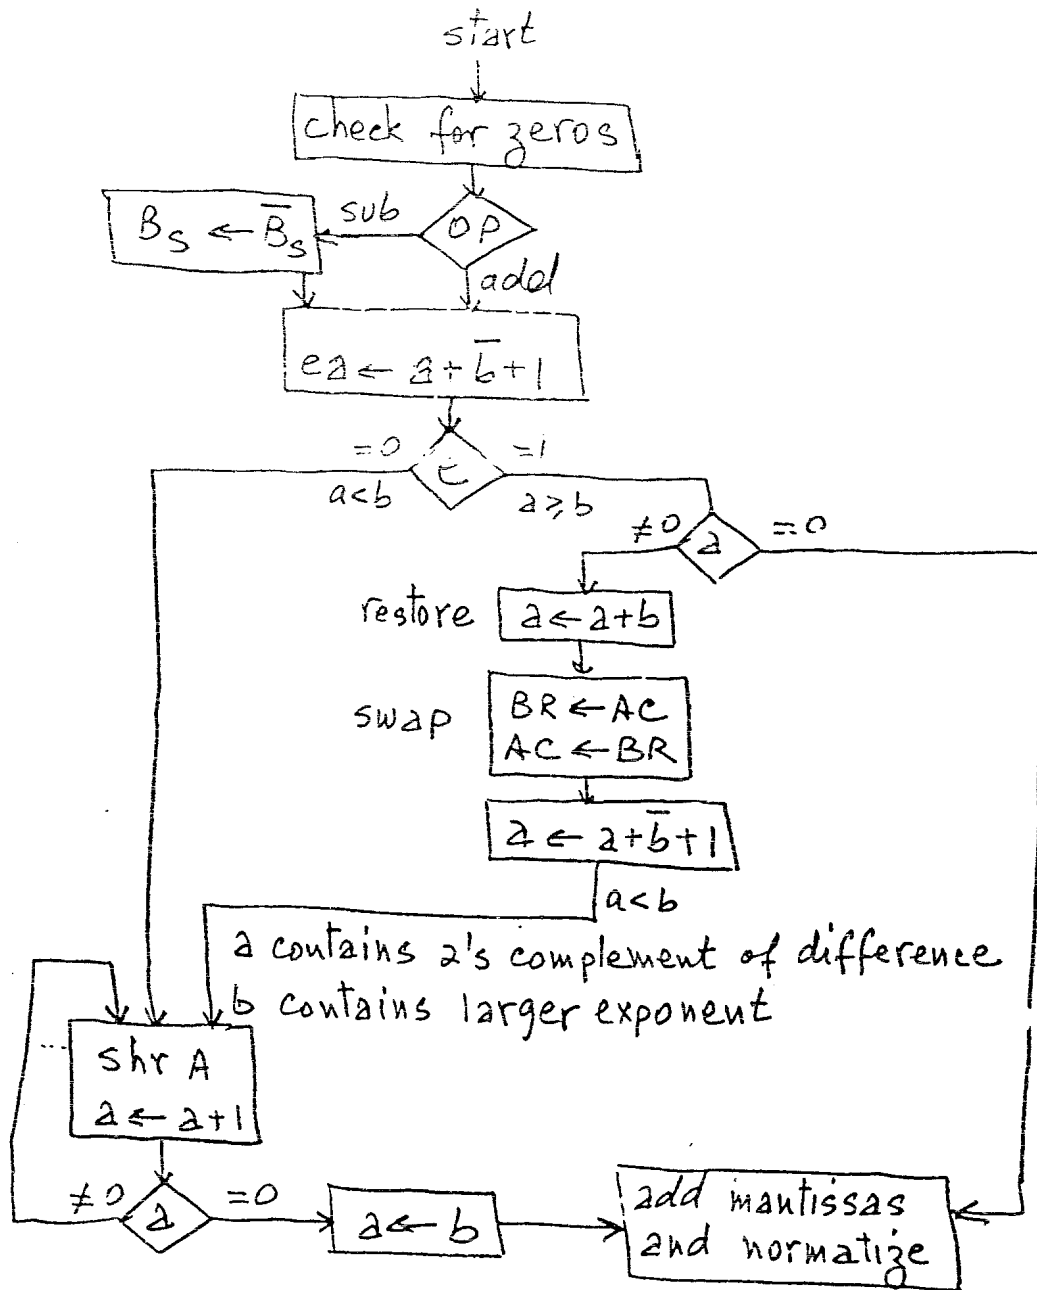 start
check for zeros
OP
sub
B_S ← B̅_S
add
ea ← a + b̅ + 1
e
=0
a<b
=1
a≥b
a
≠0
=0
restore
a ← a+b
swap
BR ← AC
AC ← BR
a ← a+b̅+1
a<b
a contains 2's complement of difference
b contains larger exponent
shr A
a ← a+1
a
≠0
=0
a ← b
add mantissas
and normatize